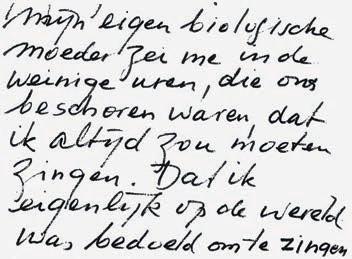 Mijn eigen biologische
moeder zei me in de
weinige uren, die ons
beschoren waren, dat
ik altijd zou moeten
zingen. Dat ik
eigenlijk op de wereld
was bedoeld om te zingen